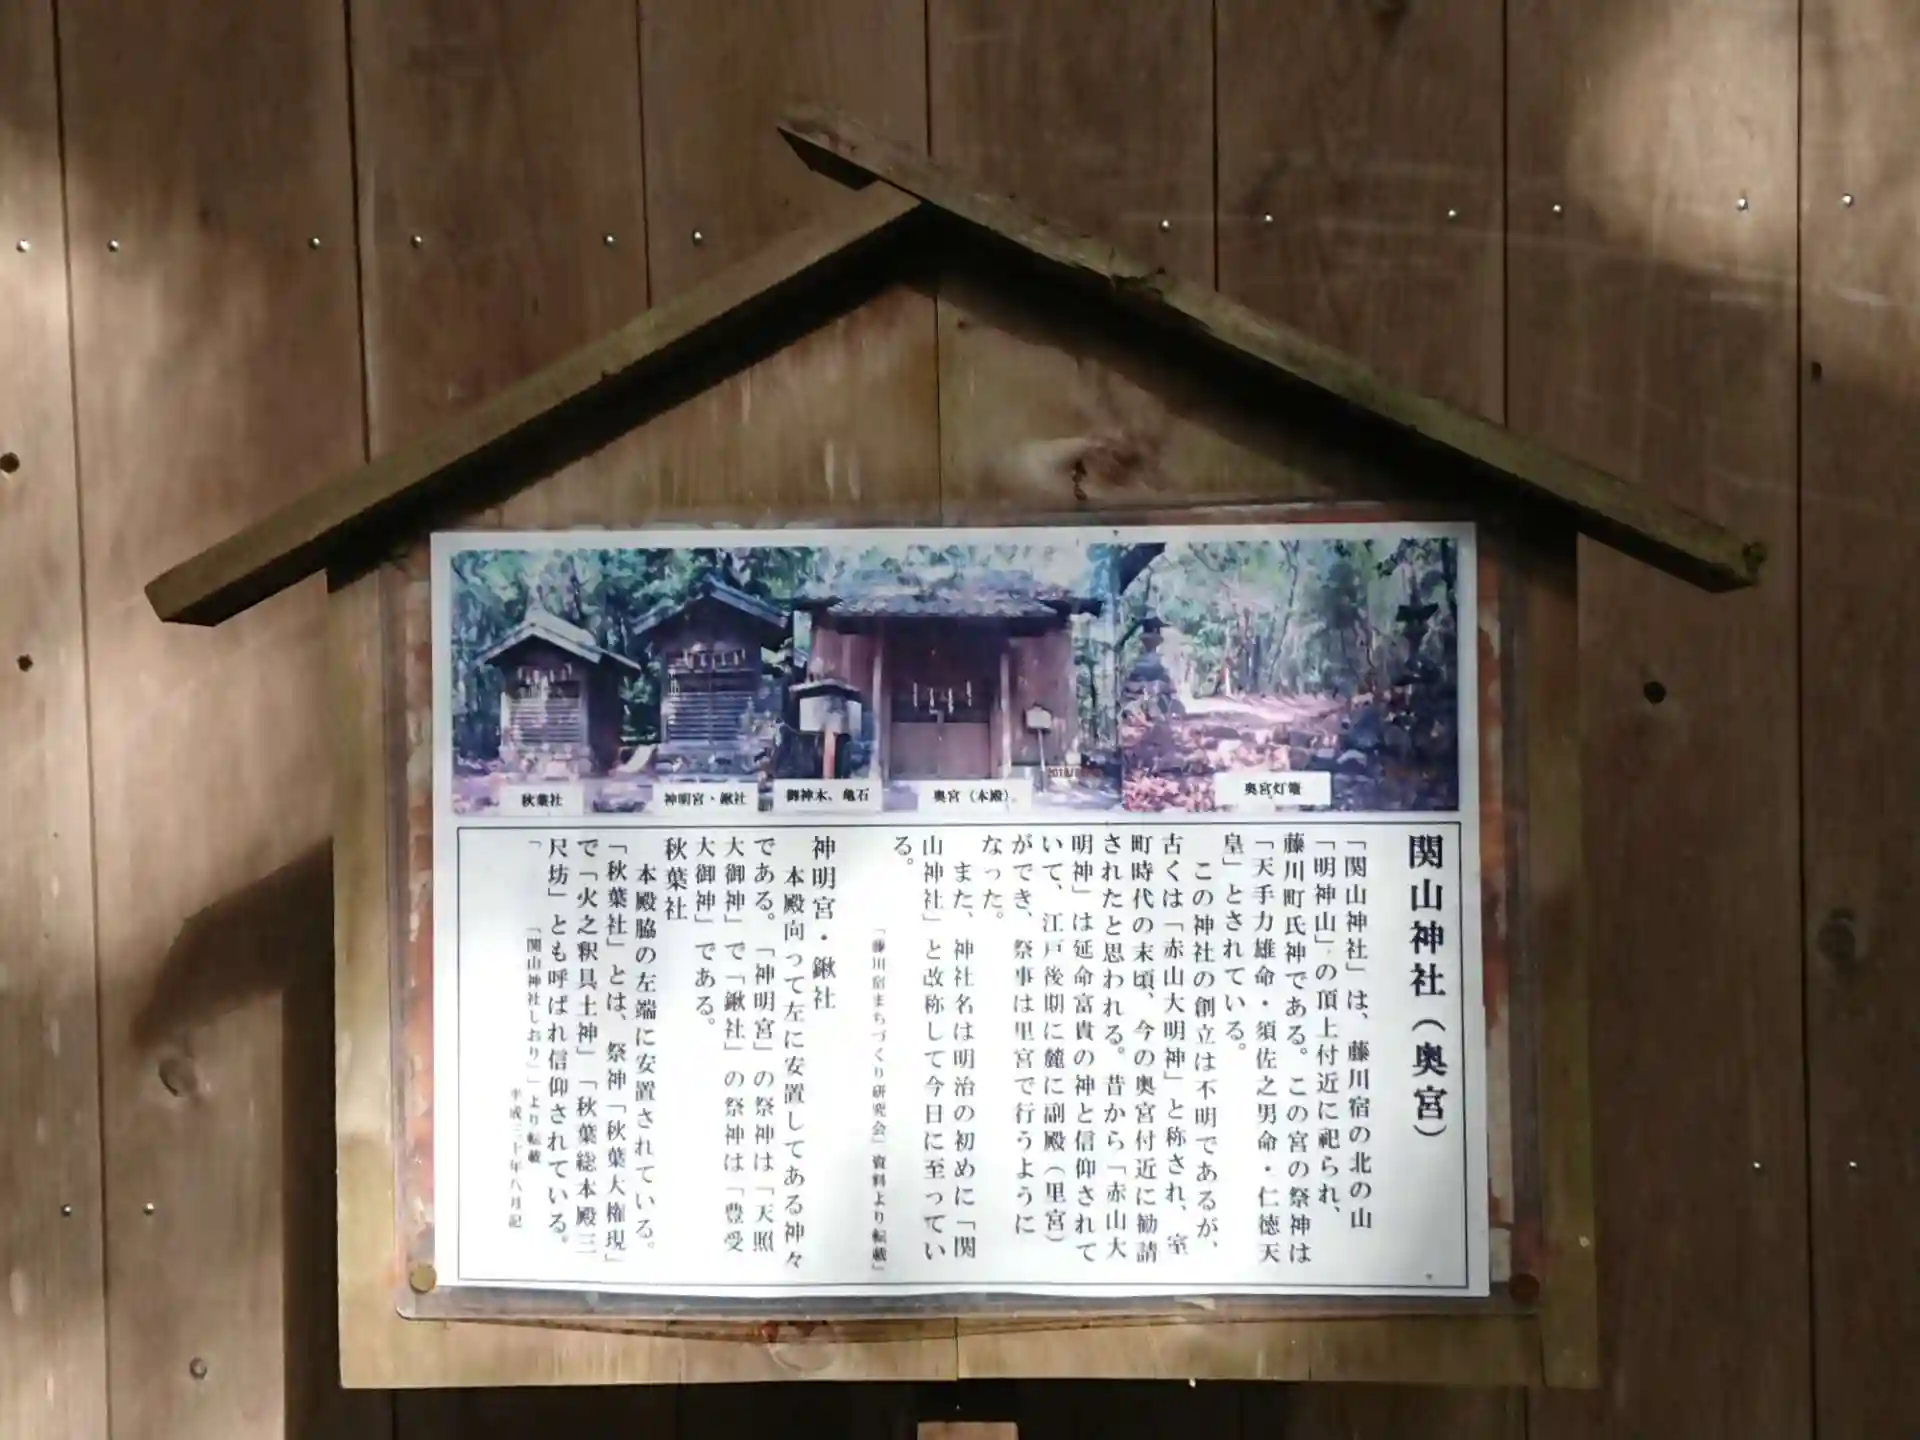 秋葉社
神明宮・鍬社
御神木、亀石
奥宮（本殿）
奥宮灯篭
関山神社（奥宮）
「関山神社」は、藤川宿の北の山
「明神山」の頂上付近に祀られ、
藤川町氏神である。この宮の祭神は
「天手力雄命・須佐之男命・仁徳天
皇」とされている。
この神社の創立は不明であるが、
古くは「赤山大明神」と称され、室
町時代の末頃、今の奥宮付近に勧請
されたと思われる。昔から「赤山大
明神」は延命富貴の神と信仰されて
いて、江戸後期に麓に副殿（里宮）
ができ、祭事は里宮で行うように
なった。
また、神社名は明治の初めに「関
山神社」と改称して今日に至ってい
る。
「藤川宿まちづくり研究会」資料より転載」
神明宮・鍬社
本殿向って左に安置してある神々
である。「神明宮」の祭神は「天照
大御神」で「鍬社」の祭神は「豊受
大御神」である。
秋葉社
本殿脇の左端に安置されている。
「秋葉社」とは、祭神「秋葉大権現」
で「火之釈具土神」「秋葉総本殿三
尺坊」とも呼ばれ信仰されている。
「「関山神社しおり」」より転載
平成三十年八月記